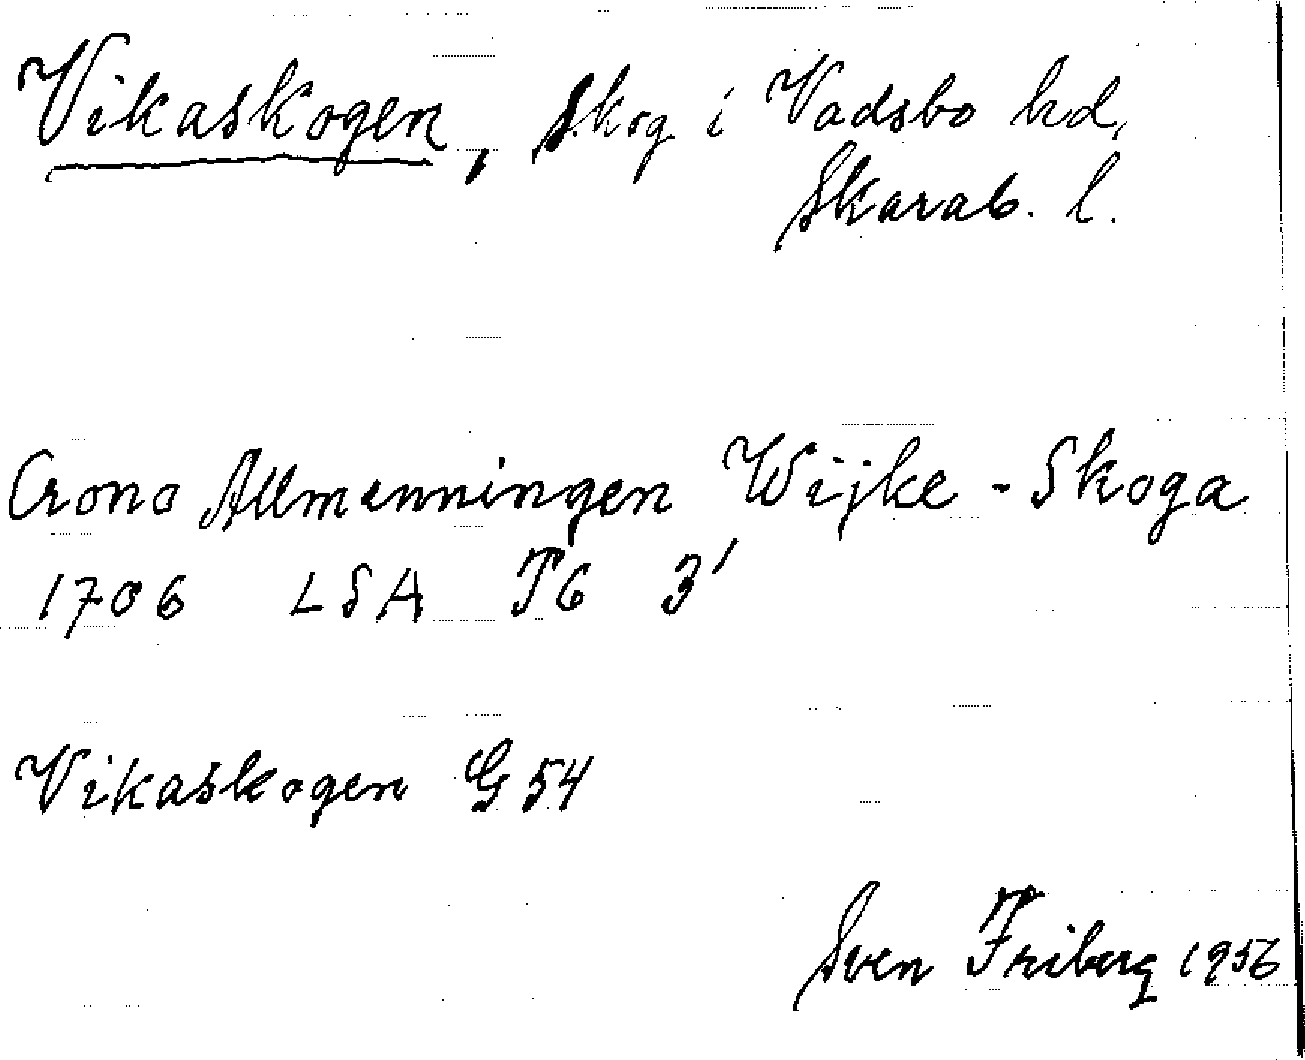 Vikaskogen, skog i Vadsbo hd,
Skarab. l.
Crono Allmenningen Wijke-Skoga
1706 LSA P6 3'
Vikaskogen G 54
Sven Friberg 1956